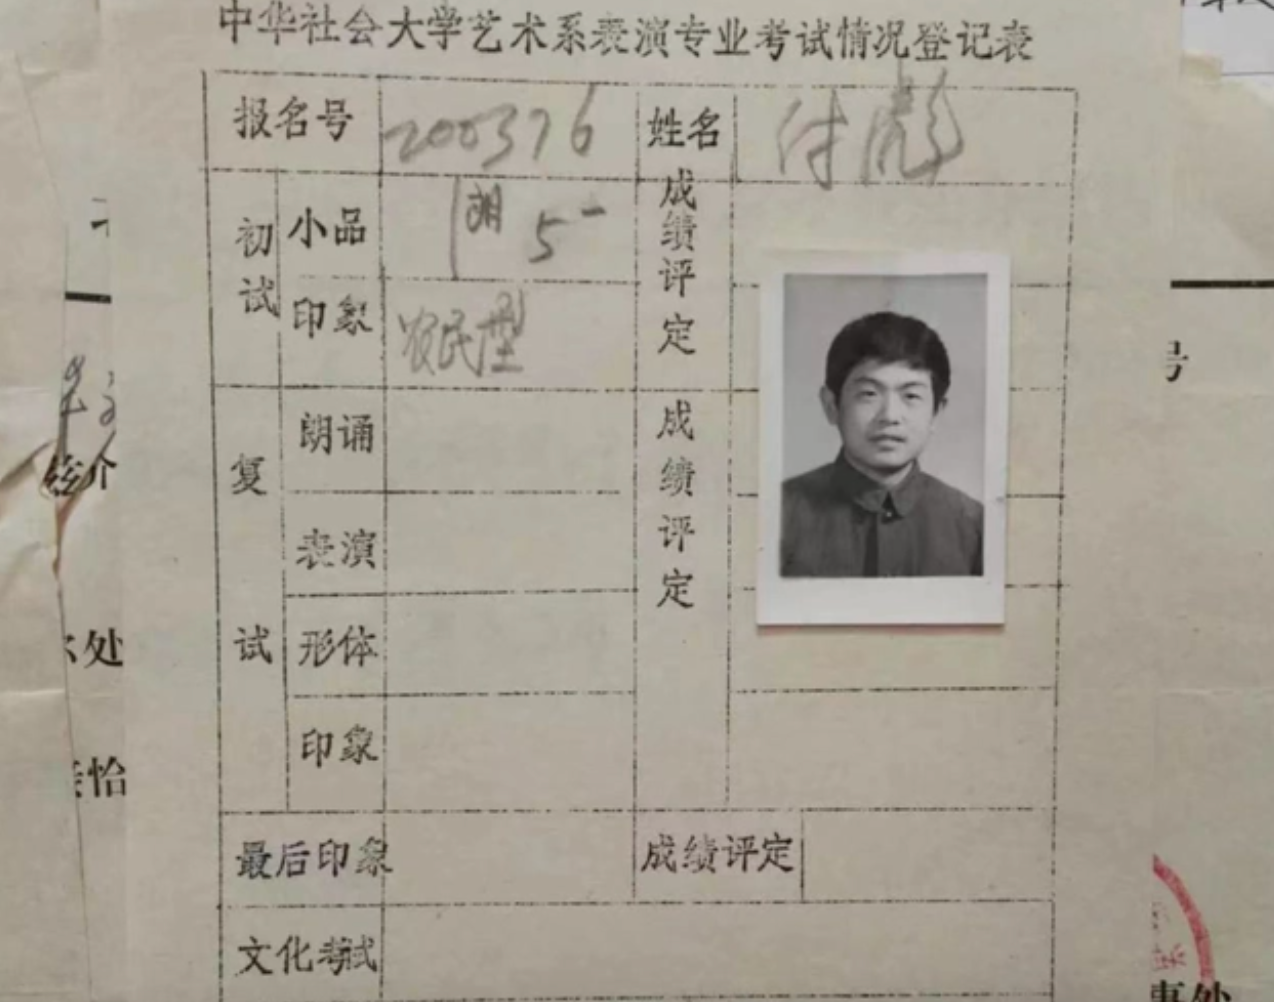 中华社会大学艺术系表演专业考试情况登记表
报名号 200376 姓名 付彪
初试 小品 朗 5- 成绩评定
印象 农民型
复试 朗诵 成绩评定
表演
形体
印象
最后印象 成绩评定
文化考试
号
介
处
怡
事处